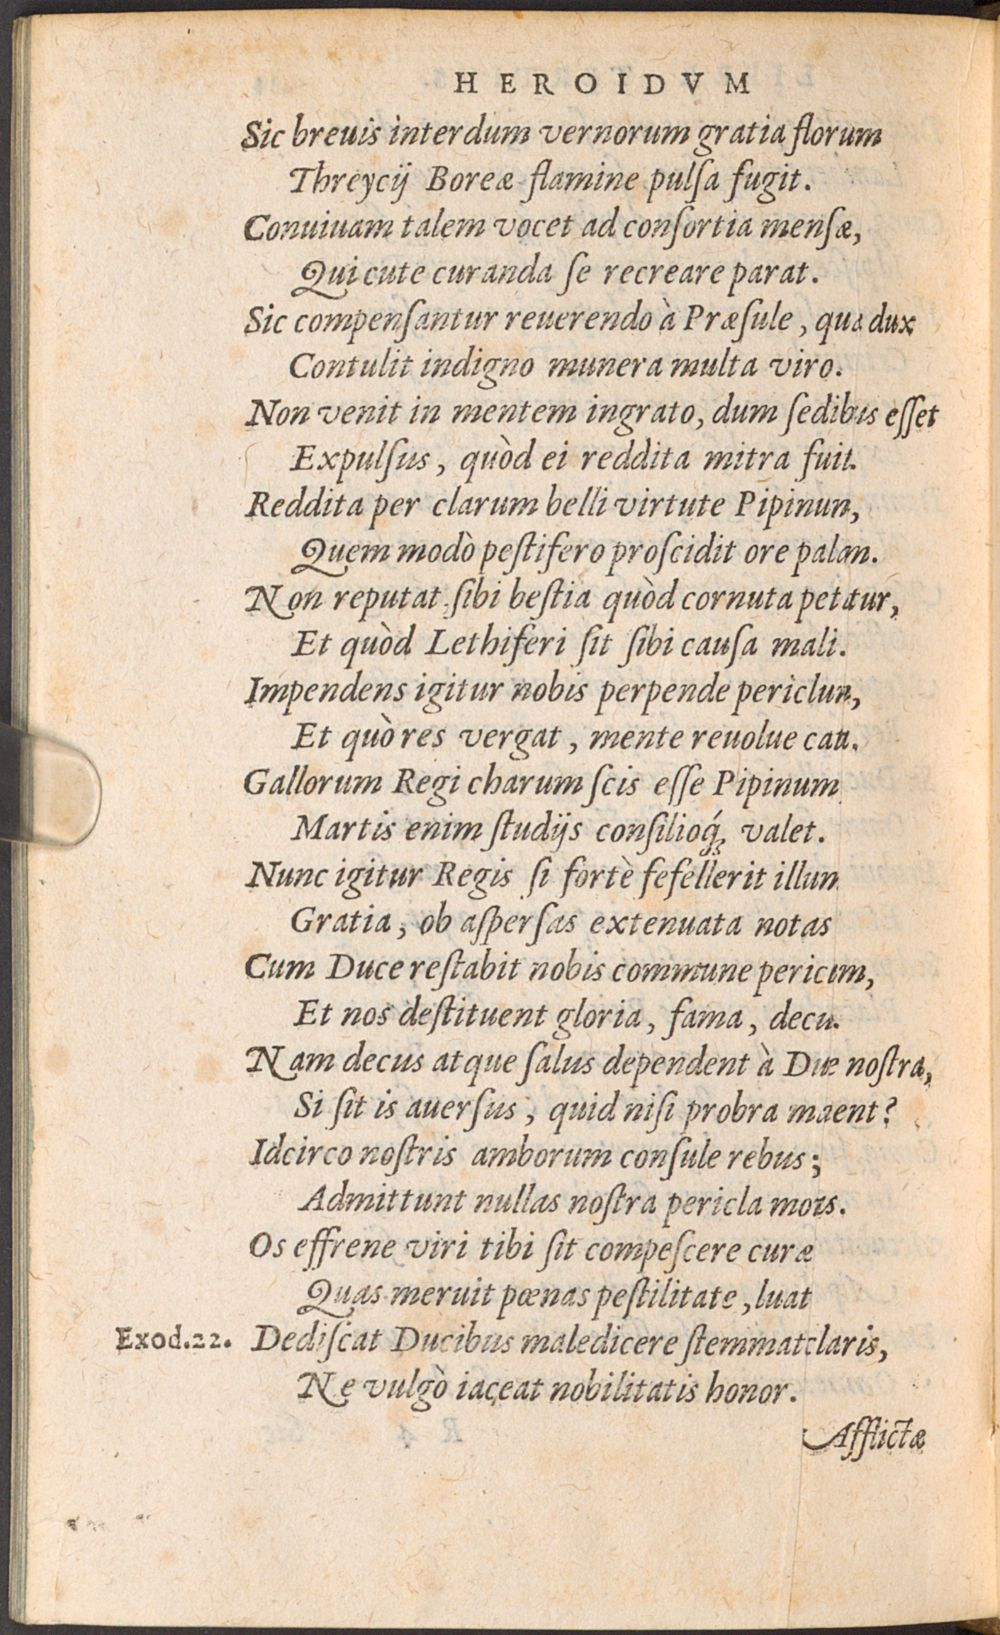 HEROIDVM
Sic breuis interdum vernorum gratia florum
Threycij Boreæ flamine pulſa fugit.
Conuiuam talem vocet ad conſortia menſæ,
Qui cute curanda ſe recreare parat.
Sic compenſantur reuerendo à Præſule, quæ dux
Contulit indigno munera multa viro.
Non venit in mentem ingrato, dum ſedibus eſſet
Expulſus, quòd ei reddita mitra fuit.
Reddita per clarum belli virtute Pipinum,
Quem modò peſtifero proſcidit ore palam.
Non reputat ſibi beſtia quòd cornuta petatur,
Et quòd Lethiferi ſit ſibi cauſa mali.
Impendens igitur nobis perpende periclum,
Et quò res vergat, mente reuolue cata.
Gallorum Regi charum ſcis eſſe Pipinum
Martis enim ſtudijs conſilioq́; valet.
Nunc igitur Regis ſi fortè fefellerit illum
Gratia, ob aſperſas extenuata notas
Cum Duce reſtabit nobis commune periclum,
Et nos deſtituent gloria, fama, decus.
Nam decus atque ſalus dependent à Duce noſtra,
Si ſit is auerſus, quid niſi probra manent?
Idcirco noſtris amborum conſule rebus;
Admittunt nullas noſtra pericla moras.
Os effrene viri tibi ſit compeſcere curæ
Quas meruit pœnas peſtilitate, luat
Exod.22. Dediſcat Ducibus maledicere ſtemmate claris,
Ne vulgò iaceat nobilitatis honor.
Afflictæ